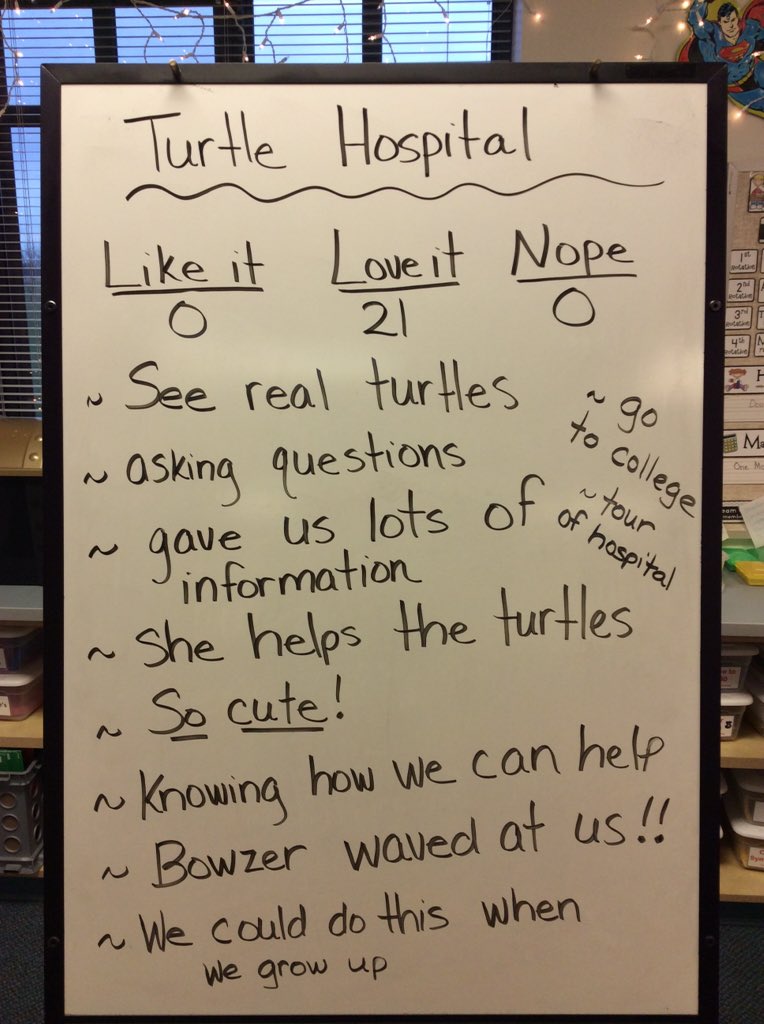 Turtle Hospital
Like it Love it Nope
0 21 0
~ See real turtles
~ asking questions
~ gave us lots of
information
~ She helps the turtles
~ So cute!
~ Knowing how we can help
~ Bowzer waved at us!!
~ We could do this when
we grow up
~ go
to college
~ tour
of hospital
1st
2nd
3rd
4th